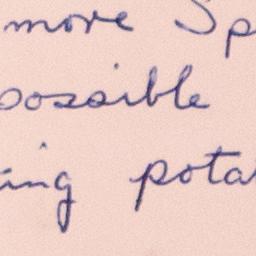 more Sp
possible
ing pota